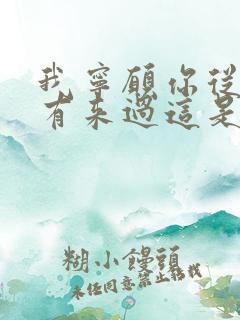 我寧願你從
有来過這是
糊小饅頭
未任同意禁止轉載